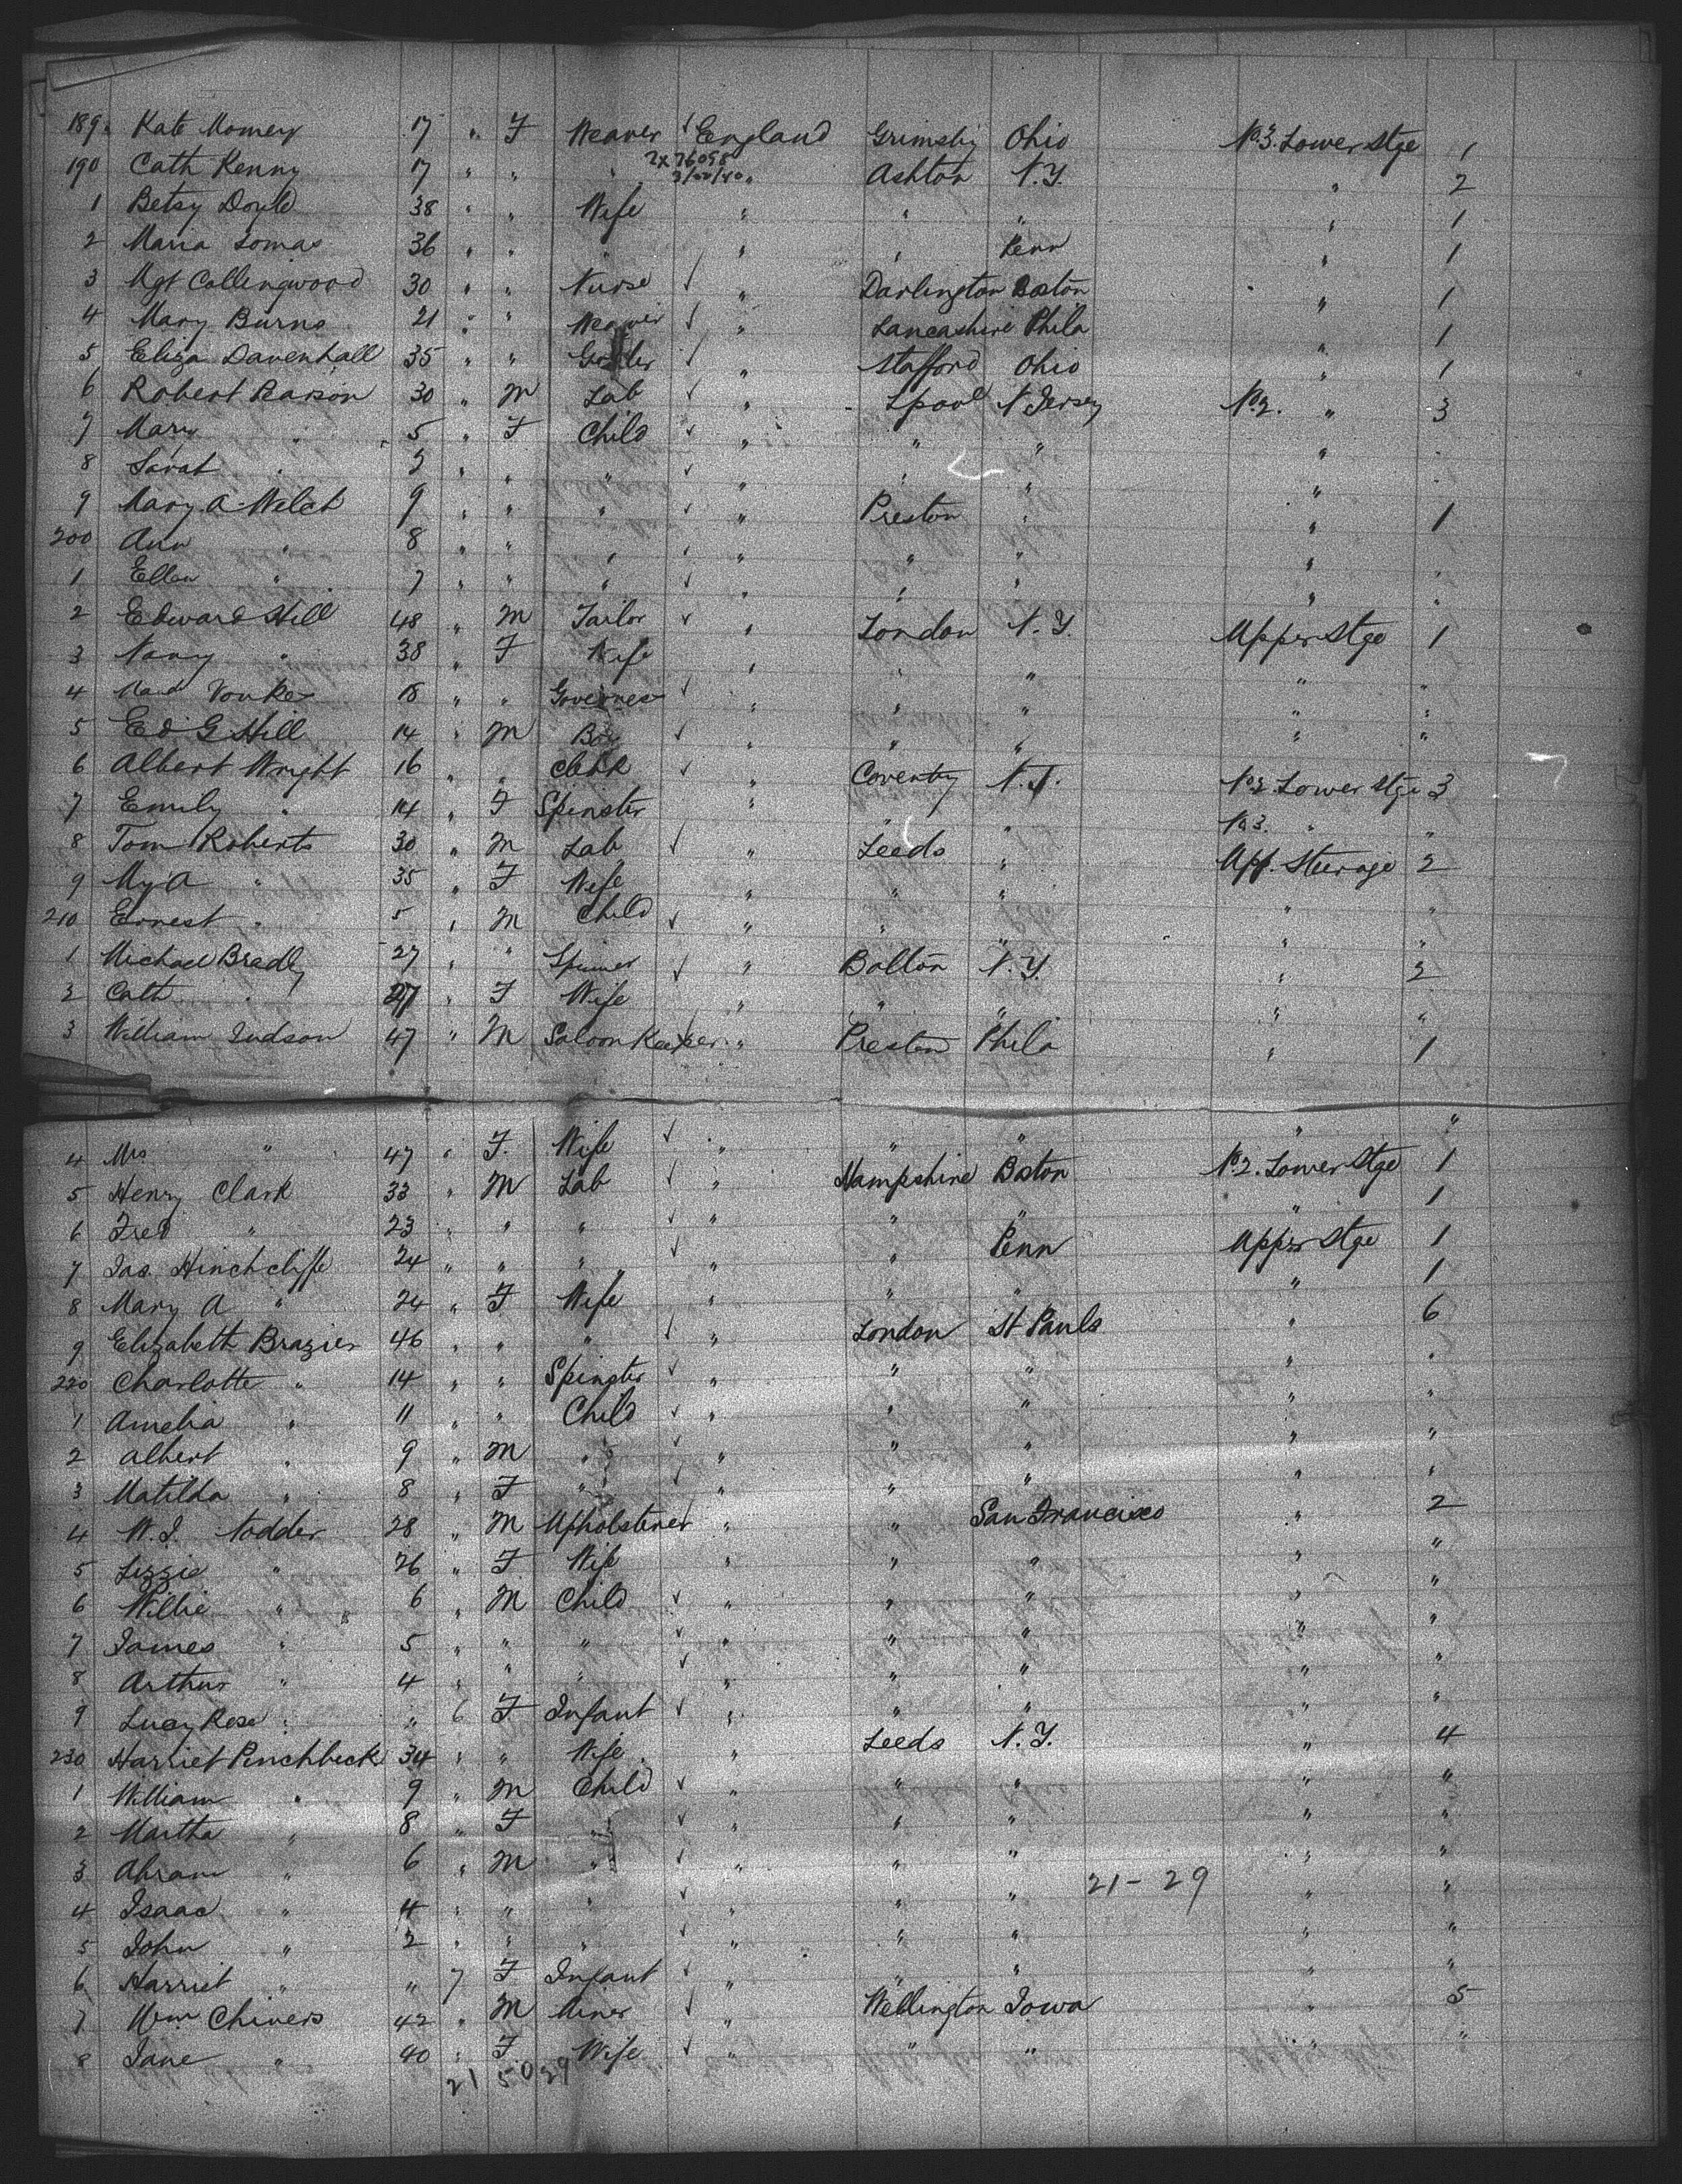 189 Kate Momery 17 " F Weaver England Grimsby Ohio No 3. Lower Stge 1
2x76098
3/00/40
190 Cath Kenny 17 " " " " Ashton N.Y. " 2
1 Betsy Doyle 38 " " Wife " " " " 1
2 Maria Lomas 36 " " " " " Penn " 1
3 Mgt Collingwood 30 " " Nurse " Darlington Boston " 1
4 Mary Burns 21 " " Weaver " Lancashire Phila " 1
5 Eliza Davenhall 35 " " " Stafford Ohio " 1
6 Robert Rarson 30 " M Lab " Lpool N Jersey No 2. " 3
7 Mary " 5 " F Child " " " " "
8 Sarah " 3 " " " " " " " "
9 Mary A Welch 9 " " " " Preston " " 1
200 Ann " 8 " " " " " " " "
1 Ellen " 7 " " " " " " " "
2 Edward Hill 48 " M Tailor " London N.Y. Upper Stge 1
3 Nancy " 38 " F Wife " " " " "
4 Maud 18 " " Governess " " " " "
5 Ed G Hill 14 " M Boy " " " " "
6 Albert Wright 16 " " Clerk " Coventry N.J. No 2. Lower Stge 3
7 Emily " 14 " F Spinster " " " No 3. " "
8 Tom Roberts 30 " M Lab " Leeds " Upp. Steerage 2
9 My A " 35 " F Wife " " " " "
210 Ernest " 5 " M Child " " " " "
1 Michael Bradly 27 " " Spinner " Bolton N.Y. " 2
2 Cath " 27 " F Wife " " " " "
3 William Judson 47 " M Saloon Keeper " Preston Phila " 1
4 Mrs " 47 " F. Wife " " " " "
5 Henry Clark 33 " M Lab " Hampshire Boston No 2. Lower Stge 1
6 Fred " 23 " " " " " " " 1
7 Jas. Hinchcliffe 24 " " " " " Penn Upper Stge 1
8 Mary A " 24 " F Wife " " " " 1
9 Elizabeth Brazier 46 " " " " London St Pauls " 6
220 Charlotte " 14 " " Spinster " " " " "
1 Amelia " 11 " " Child " " " " "
2 Albert " 9 " M " " " " " "
3 Matilda " 8 " F " " " " " "
4 W. J. Nodder 28 " M Upholsterer " " San Francisco " 2
5 Lizzie " 26 " F Wife " " " " "
6 Willie " 6 " M Child " " " " "
7 James " 5 " " " " " " " "
8 Arthur " 4 " " " " " " " "
9 Lucy Rose " " 6 F Infant " " " " "
230 Harriet Pinchbeck 34 " " Wife " Leeds N.Y. " 4
1 William " 9 " M Child " " " " "
2 Martha " 8 " F " " " " " "
3 Abram " 6 " M " " " " " "
21-29
4 Isaac " 4 " " " " " " " "
5 John " 2 " " " " " " " "
6 Harriet " " 7 F Infant " " " " "
7 Wm Chivers 42 " M Miner " Wellington Iowa " 5
8 Jane " 40 " F Wife " " " " "
21 50 29